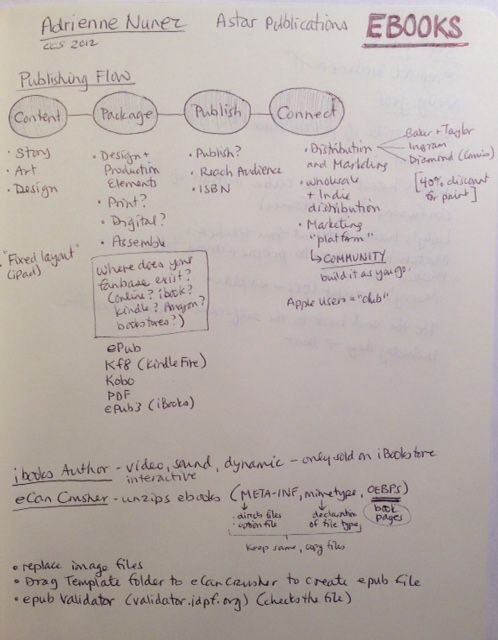 Adrienne Nunez Astar Publications EBOOKS
CCS 2012
Publishing Flow
Content Package Publish Connect
• Story
• Art
• Design
• Design +
Production
Elements
• Print?
• Digital?
• Assemble
• Publish?
• Reach Audience
• ISBN
• Distribution
and Marketing
Baker + Taylor
Ingram
Diamond (Comics)
[40% discount
for print]
• wholesale
+ Indie
distribution
• Marketing
"platform"
↳ COMMUNITY
build it as you go
Apple users = "club"
"Fixed layout"
(iPad)
Where does your
fanbase exist?
(online? ibook?
kindle? Amazon?
bookstores?)
ePub
Kf8 (Kindle Fire)
Kobo
PDF
ePub3 (iBooks)
ibooks Author - video, sound, dynamic - only sold on iBookstore
interactive
eCan Crusher - unzips ebooks (META-INF, mimetype, OEBPS)
• directs files
• option file
declaration
of file type
book
pages
Keep same, copy files
• replace image files
• Drag Template folder to eCanCrusher to create epub file
• epub Validator (validator.idpf.org) (checks the file)